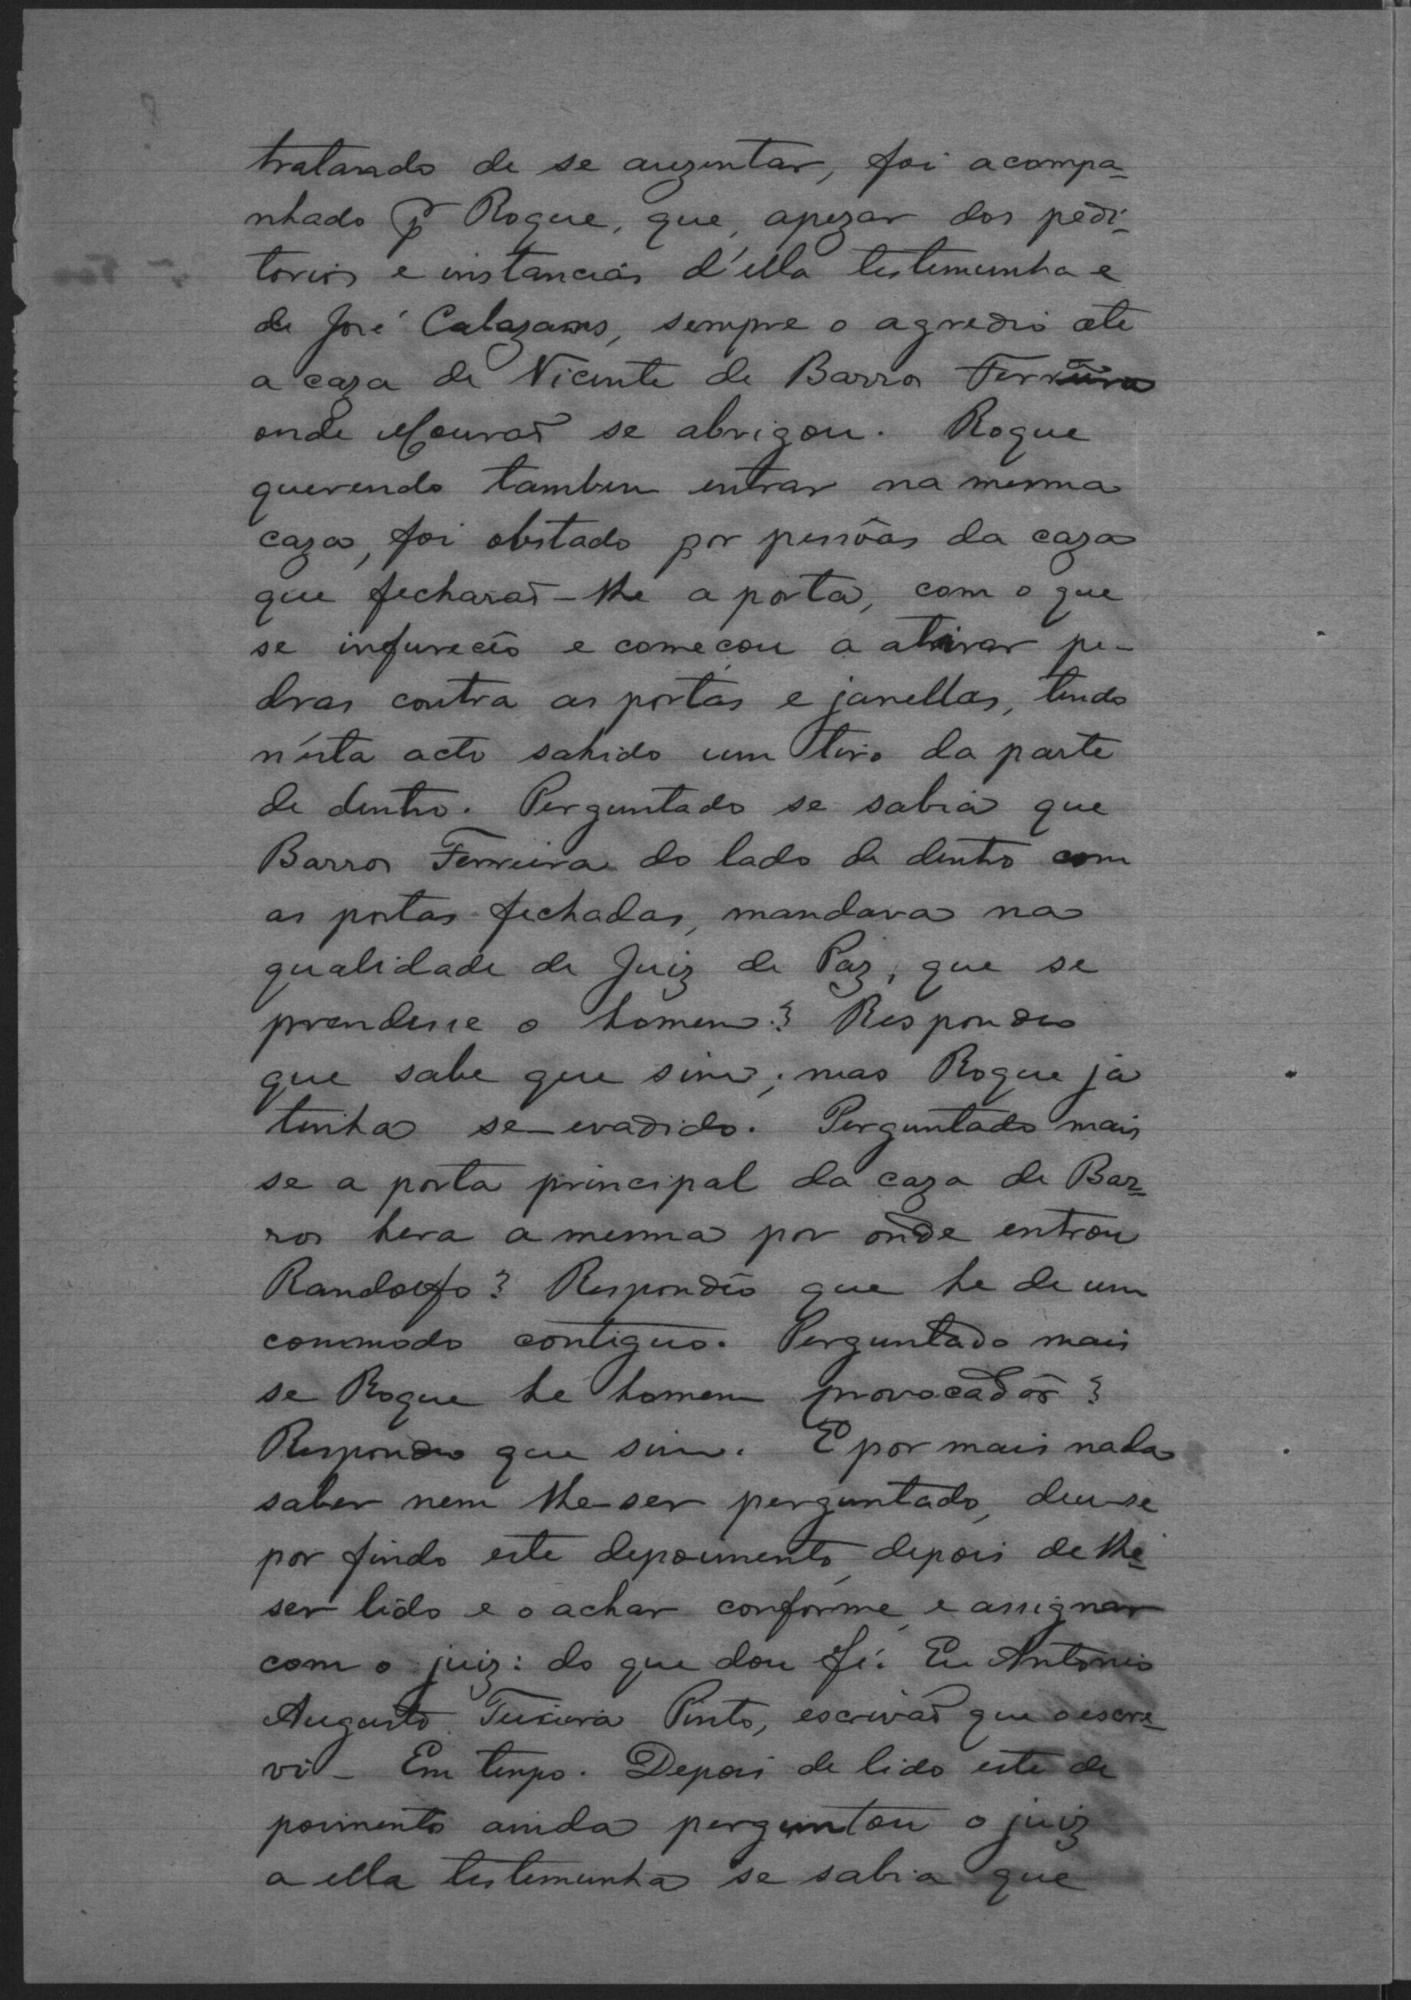 tratando de se auzentar, foi acompa-
nhado p.r Roque, que, apezar dos pedi-
torios e instancias d'ella testemunha e
de José Calazans, sempre o agredio até
a caza de Vicente de Barros Ferreira
onde Mourão se abrigou. Roque
querendo tambem entrar na mesma
caza, foi obstado por pessôas da caza
que fecharaõ-lhe a porta, com o que
se infurecêo e começou a atirar pe-
dras contra as portas e janellas, tendo
n'esta acto sahido um tiro da parte
de dentro. Perguntado se sabia que
Barros Ferreira do lado de dentro com
as portas fechadas, mandava na
qualidade de Juiz de Paz, que se
prendesse o homem? Respondeo
que sabe que sim; mas Roque já
tinha se-evadido. Perguntado mais
se a porta principal da caza de Bar-
ros hera a mesma por onde entrou
Randolfo? Respondêo que he de um
commodo contiguo. Perguntado mais
se Roque he homem provocadôr?
Respondeo que sim. E por mais nada
saber nem lhe-ser perguntado, deu-se
por findo este depoimento, depois de lhe-
ser lido e o achar conforme, e assignar
com o juiz: do que dou fé. Eu Antonio
Augusto Teixeira Pinto, escrivaõ que o escre-
vi - Em tempo. Depois de lido este de
poimento ainda perguntou o juiz
a ella testemunha se sabia que